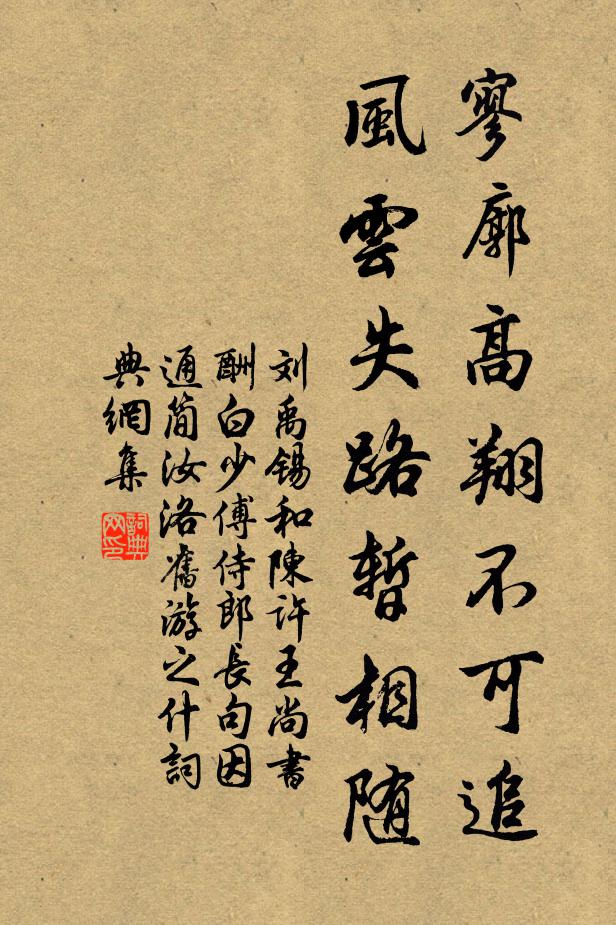 寥廓高翔不可追
風雲失路暫相随
刘禹锡和陳許王尚書
酬白少傅侍郎長句因
通簡汝洛舊游之什詞
典網集
詞典网印